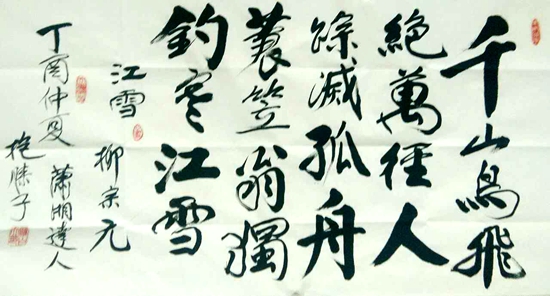 千山鳥飛
絕萬徑人
踪滅孤舟
蓑笠翁獨
釣寒江雪
江雪
柳宗元
丁酉仲夏
蕭湘達人
抱朴子